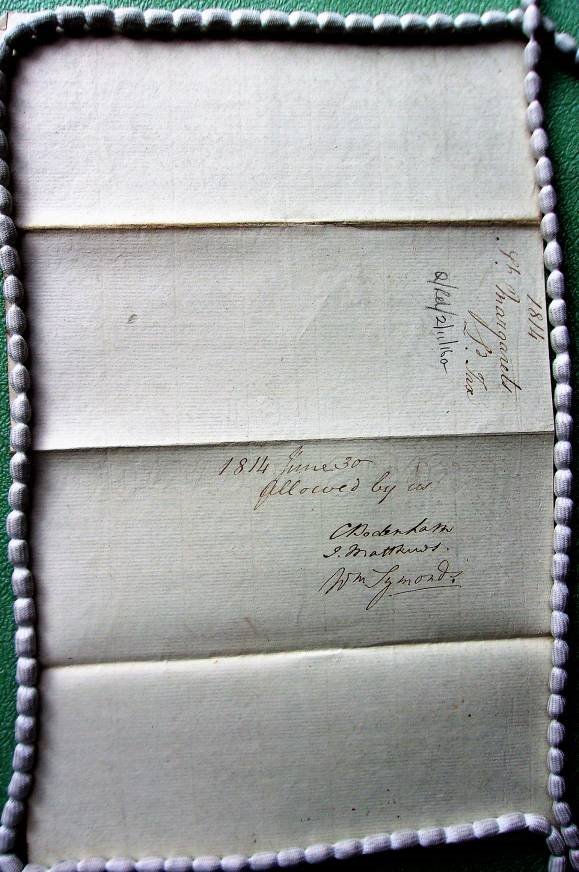 1814
St. Margarets
L. Tax
Q/Rel/2/11/160
1814 June 30
Allowed by us
C Bodenham
J. Matthews.
Wm Symonds